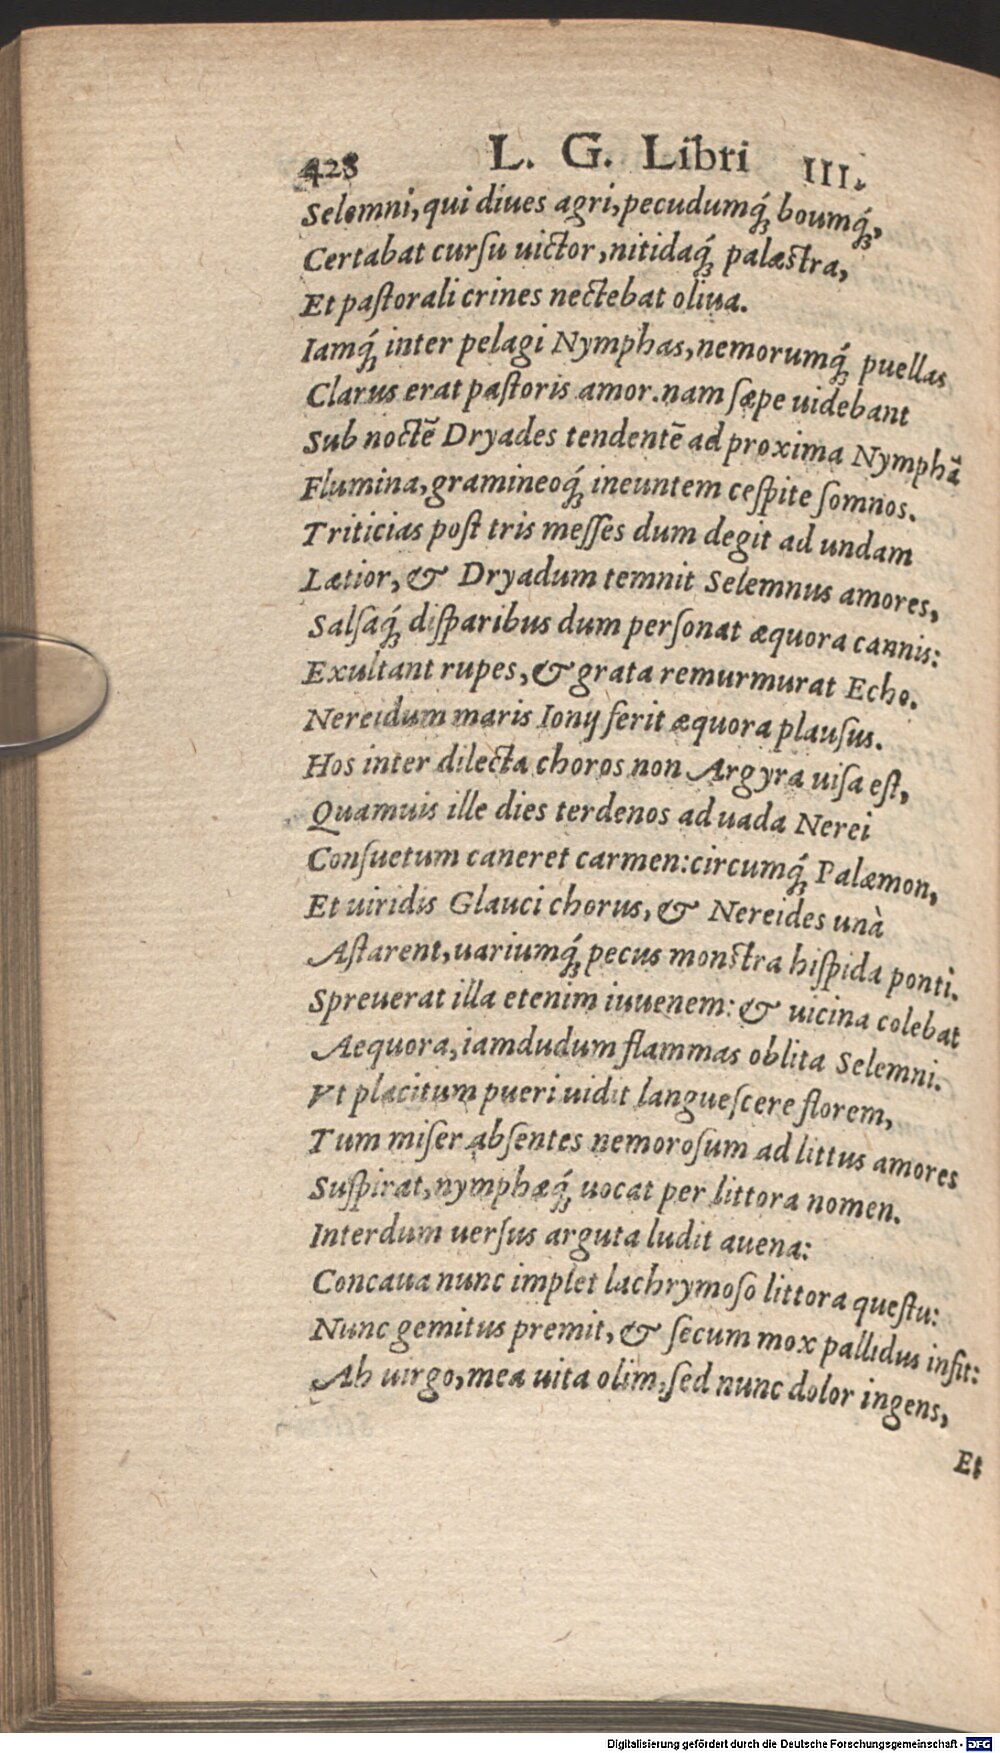 428 L. G. Libri III.
Selemni, qui diues agri, pecudumq́; boumq́;,
Certabat cursu uictor, nitidaq́; palæstra,
Et pastorali crines nectebat oliua.
Iamq́; inter pelagi Nymphas, nemorumq́; puellas
Clarus erat pastoris amor. nam sæpe uidebant
Sub noctē Dryades tendentē ad proxima Nymphā
Flumina, gramineoq́; ineuntem cespite somnos.
Triticias post tris messes dum degit ad undam
Lætior, & Dryadum temnit Selemnus amores,
Salsaq́; disparibus dum personat æquora cannis:
Exultant rupes, & grata remurmurat Echo.
Nereidum maris Ionij ferit æquora plausus.
Hos inter dilecta choros non Argyra uisa est,
Quamuis ille dies terdenos ad uada Nerei
Consuetum caneret carmen: circumq́; Palæmon,
Et uiridis Glauci chorus, & Nereides unà
Astarent, uariumq́; pecus monstra hispida ponti.
Spreuerat illa etenim iuuenem: & uicina colebat
Aequora, iamdudum flammas oblita Selemni.
Vt placitum pueri uidit languescere florem,
Tum miser absentes nemorosum ad littus amores
Suspirat, nymphæq́; uocat per littora nomen.
Interdum uersus arguta ludit auena:
Concaua nunc implet lachrymoso littora questu:
Nunc gemitus premit, & secum mox pallidus infit:
Ah uirgo, mea uita olim, sed nunc dolor ingens,
Et
Digitalisierung gefördert durch die Deutsche Forschungsgemeinschaft - DFG